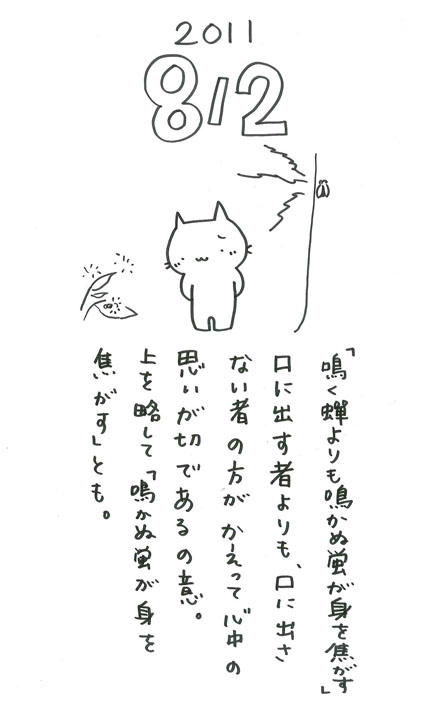 2011
8/2
「鳴く蝉よりも鳴かぬ蛍が身を焦がす」
口に出す者よりも、口に出さ
ない者の方が かえって心中の
思いが切であるの意。
上を略して「鳴かぬ蛍が身を
焦がす」とも。